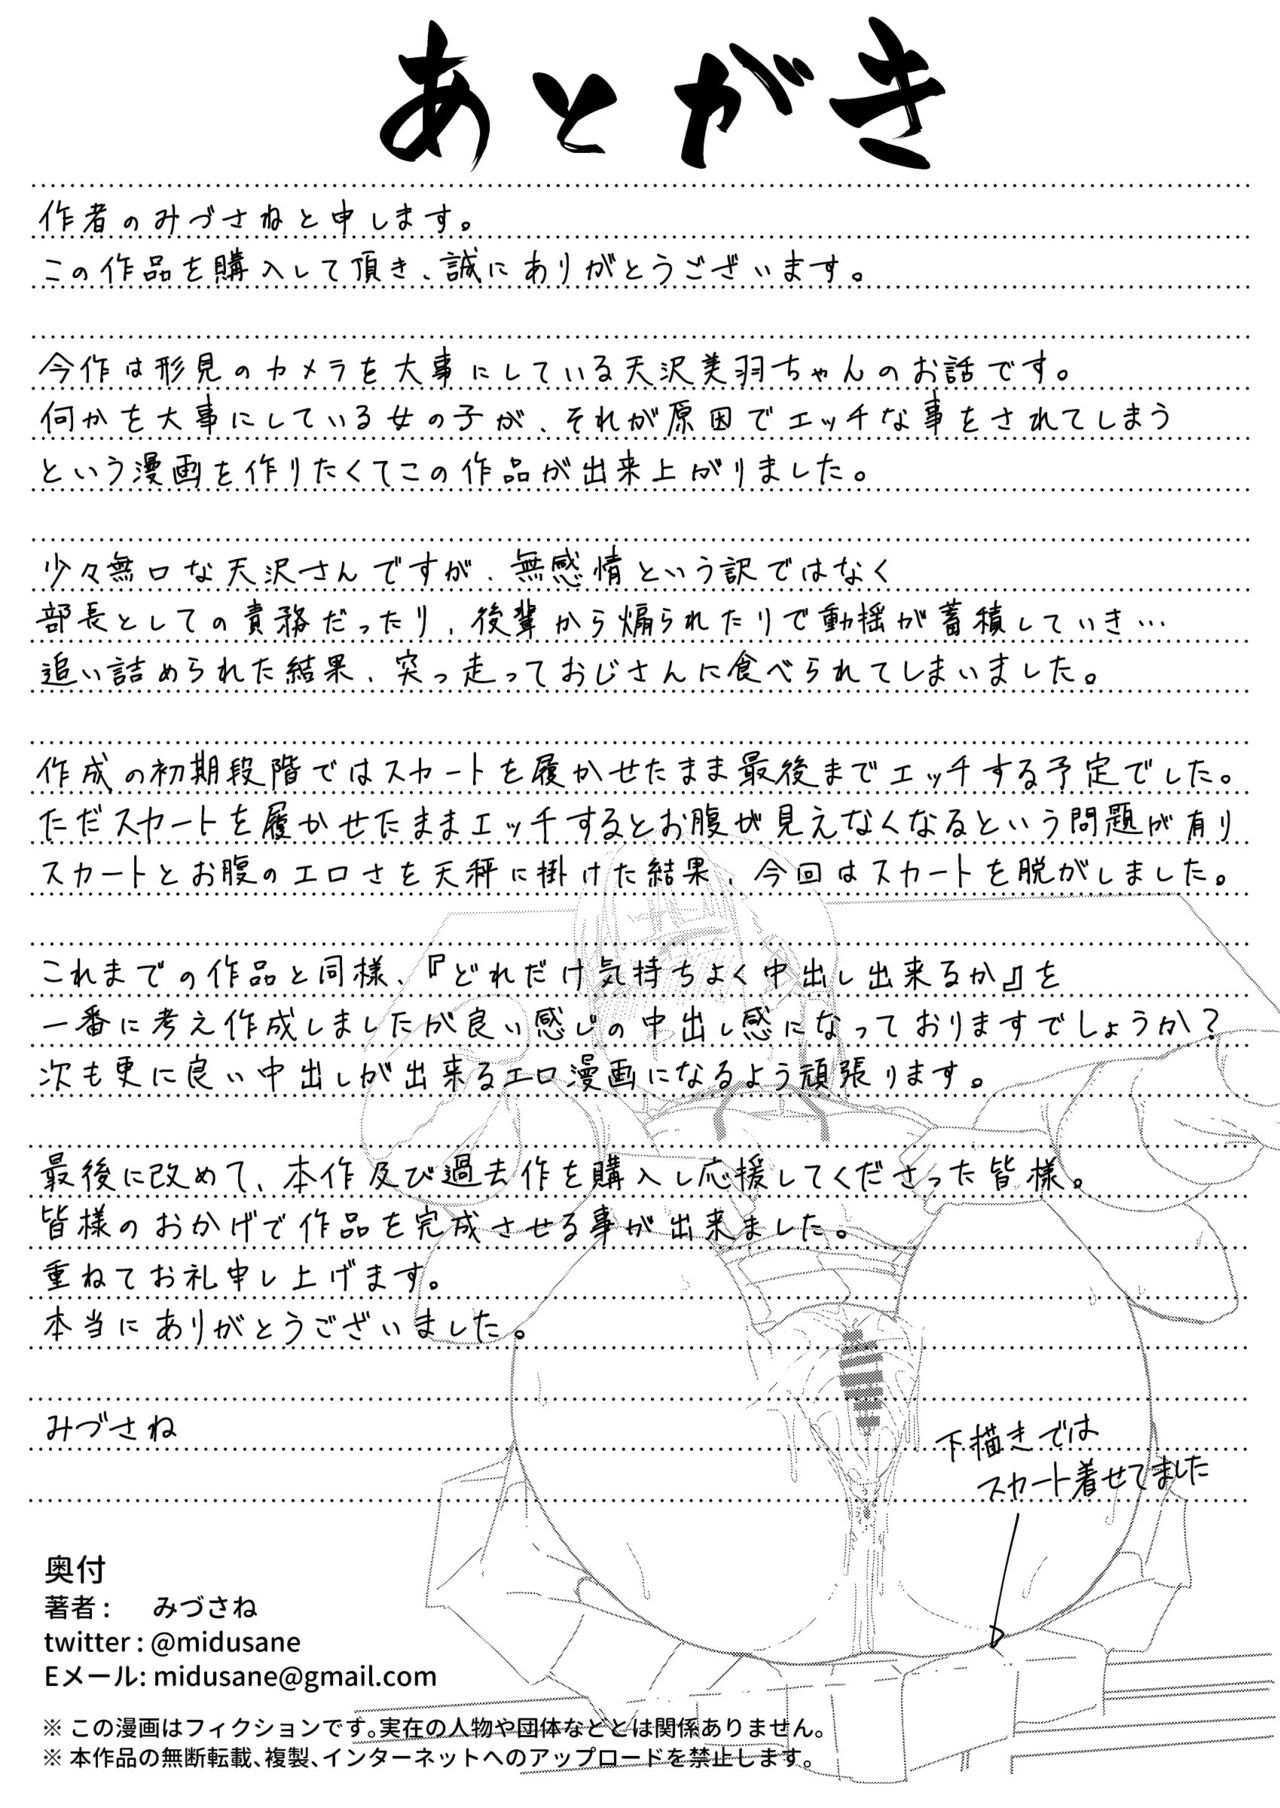 あとがき
作者のみづさねと申します。
この作品を購入して頂き、誠にありがとうございます。
今作は形見のカメラを大事にしている天沢美羽ちゃんのお話です。
何かを大事にしている女の子が、それが原因でエッチな事をされてしまう
という漫画を作りたくてこの作品が出来上がりました。
少々無口な天沢さんですが、無感情という訳ではなく
部長としての責務だったり、後輩から煽られたりで動揺が蓄積していき…
追い詰められた結果、突っ走っておじさんに食べられてしまいました。
作成の初期段階ではスカートを履かせたまま最後までエッチする予定でした。
ただスカートを履かせたままエッチするとお腹が見えなくなるという問題が有り
スカートとお腹のエロさを天秤に掛けた結果、今回はスカートを脱がしました。
これまでの作品と同様、『どれだけ気持ちよく中出し出来るか』を
一番に考え作成しましたが良い感じの中出し感になっておりますでしょうか？
次も更に良い中出しが出来るエロ漫画になるよう頑張ります。
最後に改めて、本作及び過去作を購入し応援してくださった皆様。
皆様のおかげで作品を完成させる事が出来ました。
重ねてお礼申し上げます。
本当にありがとうございました。
みづさね
下描きでは
スカート着せてました
奥付
著者： みづさね
twitter : @midusane
Eメール: midusane@gmail.com
※ この漫画はフィクションです。実在の人物や団体などとは関係ありません。
※ 本作品の無断転載、複製、インターネットへのアップロードを禁止します。